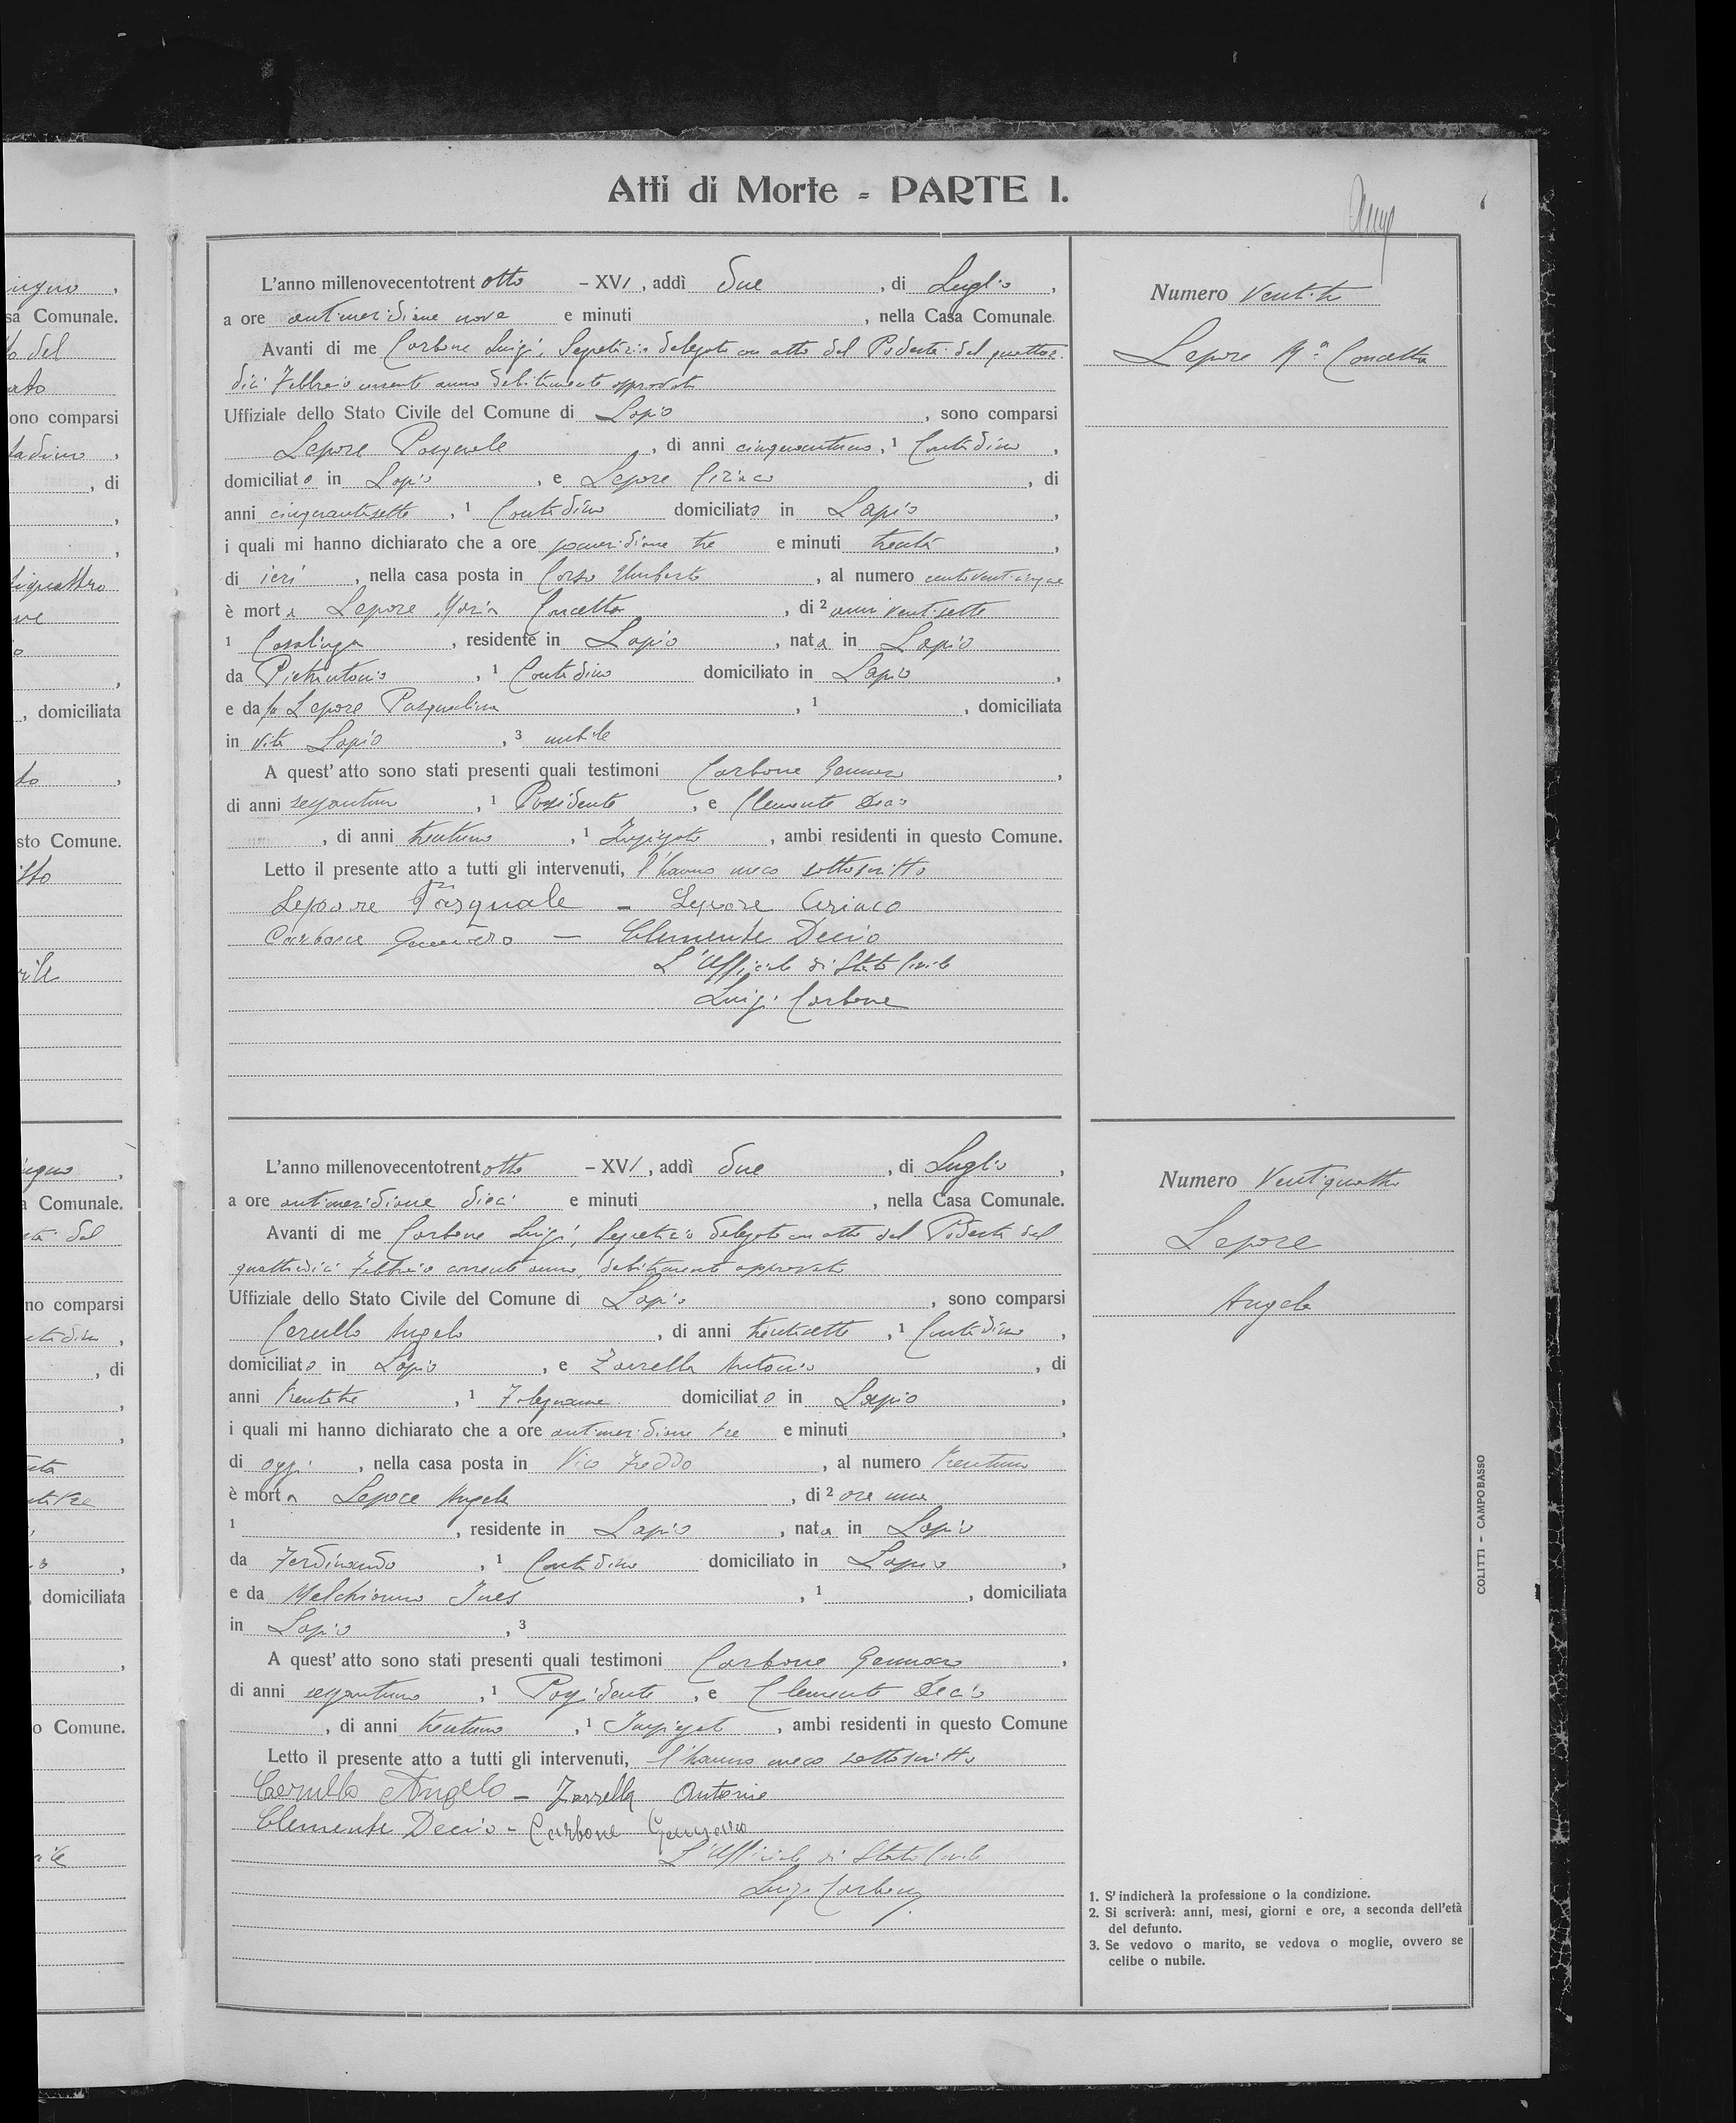 Atti di Morte - PARTE I.
L'anno millenovecentotrent otto - XVI, addì due, di Luglio,
a ore antimeridiane nove e minuti , nella Casa Comunale.
Avanti di me Carbone Luigi, Segretario delegato con atto del Podestà del quattor-
dici Febbraio corrente anno debitamente approvato
Uffiziale dello Stato Civile del Comune di Lapio, sono comparsi
Lepore Pasquale, di anni cinquantuno, 1 Contadino,
domiciliato in Lapio, e Lepore Ciriaco, di
anni cinquantasette, 1 Contadino domiciliato in Lapio,
i quali mi hanno dichiarato che a ore pomeridiane tre e minuti trenta,
di ieri, nella casa posta in Corso Umberto, al numero centoventicinque
è morta Lepore Maria Concetta, di 2 anni ventisette
1 Casalinga, residente in Lapio, nata in Lapio
da Pietrantonio, 1 Contadino domiciliato in Lapio,
e da fu Lepore Pasqualina, 1 , domiciliata
in vita Lapio, 3 nubile
A quest' atto sono stati presenti quali testimoni Carbone Gennaro,
di anni sessantuno, 1 Possidente, e Clemente Decio
, di anni trentuno, 1 Impiegato, ambi residenti in questo Comune.
Letto il presente atto a tutti gli intervenuti, l'hanno meco sottoscritto
Lepore Pasquale - Lepore Ciriaco
Carbone Gennaro - Clemente Decio
L'Ufficiale di Stato Civile
Luigi Carbone
Numero Ventitre
Lepore Mª Concetta
L'anno millenovecentotrent otto - XVI, addì due, di Luglio,
a ore antimeridiane dieci e minuti , nella Casa Comunale.
Avanti di me Carbone Luigi, Segretario delegato con atto del Podestà del
quattordici Febbraio corrente anno, debitamente approvato
Uffiziale dello Stato Civile del Comune di Lapio, sono comparsi
Cerullo Angelo, di anni trentasette, 1 Contadino,
domiciliato in Lapio, e Zarrella Antonio, di
anni trentatre, 1 Falegname domiciliato in Lapio,
i quali mi hanno dichiarato che a ore antimeridiane tre e minuti ,
di oggi, nella casa posta in Vico Freddo, al numero trentuno
è morta Lepore Angela, di 2 ore una
1 , residente in Lapio, nata in Lapio
da Ferdinando, 1 Contadino domiciliato in Lapio,
e da Melchionno Ines, 1 , domiciliata
in Lapio, 3
A quest' atto sono stati presenti quali testimoni Carbone Gennaro,
di anni sessantuno, 1 Possidente, e Clemente Decio
, di anni trentuno, 1 Impiegato, ambi residenti in questo Comune
Letto il presente atto a tutti gli intervenuti, l'hanno meco sottoscritto
Cerullo Angelo - Zarrella Antonio
Clemente Decio - Carbone Gennaro
L'Ufficiale di Stato Civile
Luigi Carbone
Numero Ventiquattro
Lepore
Angela
1. S'indicherà la professione o la condizione.
2. Si scriverà: anni, mesi, giorni e ore, a seconda dell'età
del defunto.
3. Se vedovo o marito, se vedova o moglie, ovvero se
celibe o nubile.
COLITTI - CAMPOBASSO